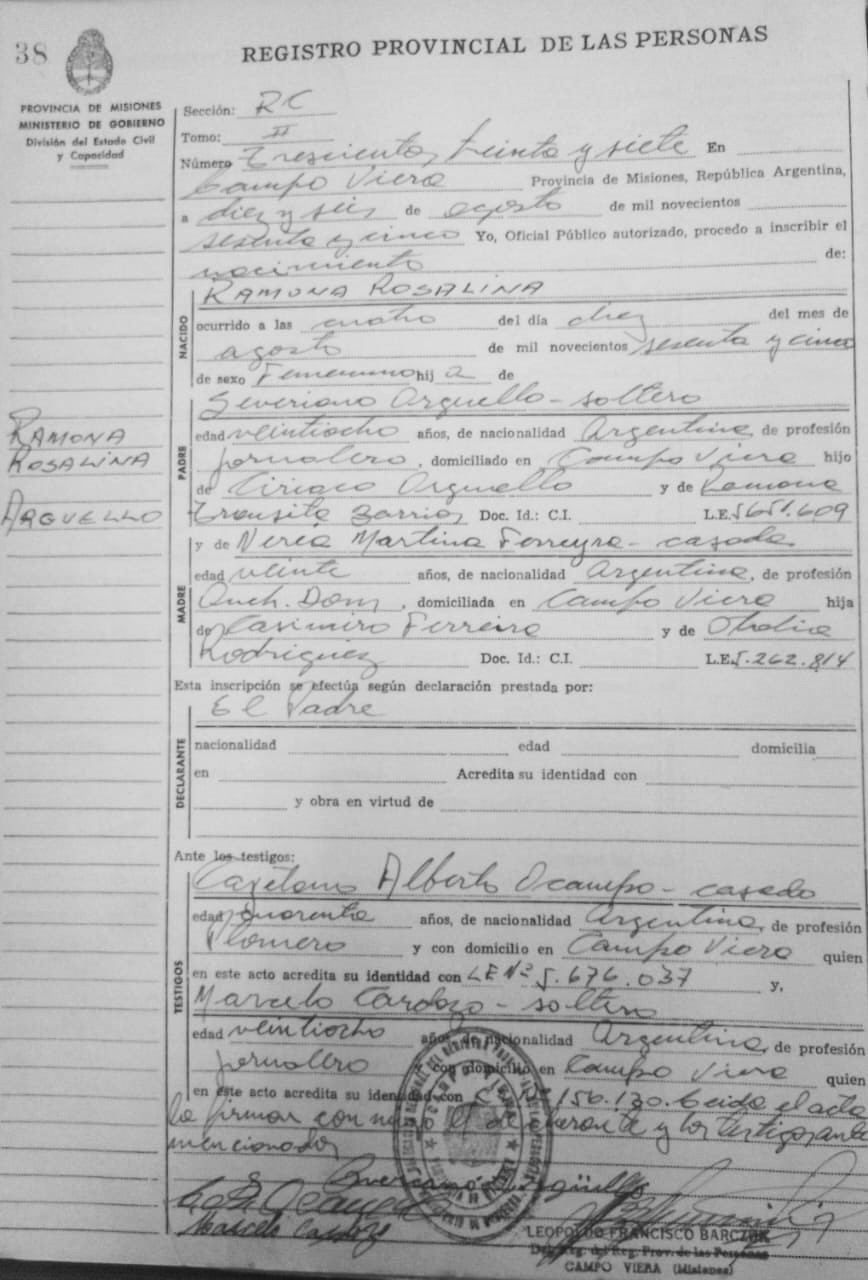 38
REGISTRO PROVINCIAL DE LAS PERSONAS
PROVINCIA DE MISIONES
MINISTERIO DE GOBIERNO
División del Estado Civil
y Capacidad
Sección: RC
Tomo: II
Número Trescientos treinta y siete En
Campo Viera Provincia de Misiones, República Argentina,
a diez y seis de agosto de mil novecientos
sesenta y cinco Yo, Oficial Público autorizado, procedo a inscribir el
nacimiento de:
NACIDO
RAMONA ROSALINA
ocurrido a las cuatro del día diez del mes de
agosto de mil novecientos sesenta y cinco
de sexo Femenino hija de
RAMONA
ROSALINA
ARGUELLO
PADRE
Severiano Arguello - soltero
edad veintiocho años, de nacionalidad Argentina, de profesión
jornalero, domiciliado en Campo Viera hijo
de Ciriaco Arguello y de Ramona
Transita Barrios Doc. Id.: C.I. L.E. 5651.609
MADRE
y de Nerea Martina Ferreyra - casada
edad veinte años, de nacionalidad Argentina, de profesión
Queh. Dom, domiciliada en Campo Viera hija
de Casimiro Ferreira y de
Rodriguez Doc. Id.: C.I. L.E. 5.262.814
Esta inscripción se efectúa según declaración prestada por:
DECLARANTE
El Padre
nacionalidad edad domicilia
en Acredita su identidad con
y obra en virtud de
Ante los testigos:
TESTIGOS
Cayetano Alberto Ocampo - casado
edad cuarenta años, de nacionalidad Argentina, de profesión
Plomero y con domicilio en Campo Viera quien
en este acto acredita su identidad con LE Nº 5.676.037 y,
Marcelo Cardozo - soltero
edad veintiocho años, de nacionalidad Argentina, de profesión
jornalero y con domicilio en Campo Viera quien
en este acto acredita su identidad con 156.130. Leida el acta
la firman con migo el declarante y los testigos ante
mencionados
LEOPOLDO FRANCISCO BARCZUK
Del. Reg. del Reg. Prov. de las Personas
CAMPO VIERA (Misiones)